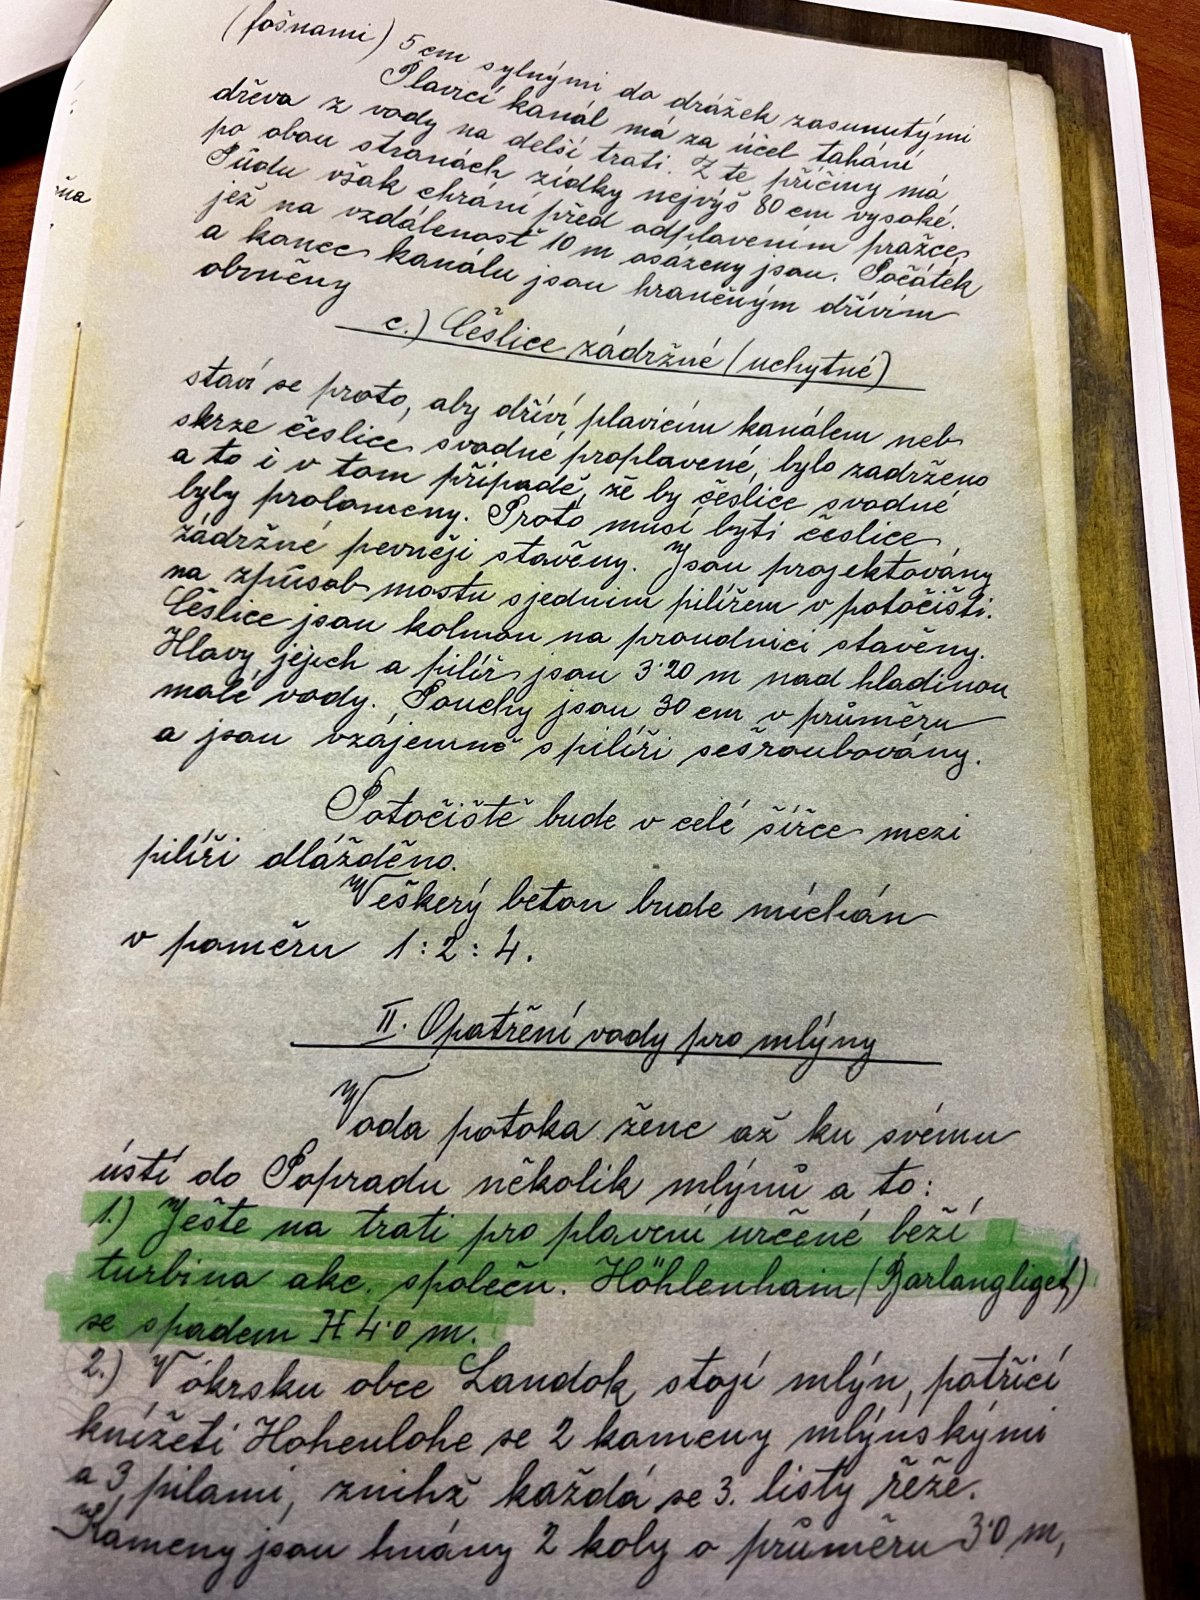 (fošnami) 5 cm sylnými do drážek zasunutými
Plavicí kanál má za účel tahání
dřeva z vody na delší trati. Z te příčiny má
po obou stranách zídky nejvýš 80 cm vysoké.
Půdu však chrání před odplavením pražce,
jež na vzdálenosť 10 m osázeny jsou. Počátek
a konec kanálu jsou hraněným dřívím
obrněny
c.) Češlice zádržné (uchytné)
staví se proto, aby dříví, plavicím kanálem neb
skrze češlice svodné proplavené, bylo zadrženo
a to i v tom případě, že by češlice svodné
byly prolomeny. Proto musí byti češlice
zádržné pevněji stavěny. Jsou projektovány
na způsob mostu sjedním pilířem v potočišti.
Češlice jsou kolmou na proudnici stavěny.
Hlavy jejich a pilíř jsou 3·20 m nad hladinou
malé vody. Pouchy jsou 30 cm v průměru
a jsou vzájemně s pilíři sešroubovány.
Potočiště bude v celé šířce mezi
pilíři dlážděno.
Veškerý beton bude míchán
v poměru 1:2:4.
II. Opatření vody pro mlýny
Voda potoka žene až ku svému
ústí do Popradu několik mlýnů a to:
1.) Ješte na trati pro plavení určené beží
turbina akc. společn. Höhlenhain (Barlangliget)
se spadem H 4·0 m.
2.) V okrsku obce Landok stojí mlýn, patřící
knížeti Hohenlohe se 2 kameny mlýnskými
a 3 pilami, znihž každá se 3. listy řeže.
Kameny jsou hnány 2 koly o průměru 3·0 m,